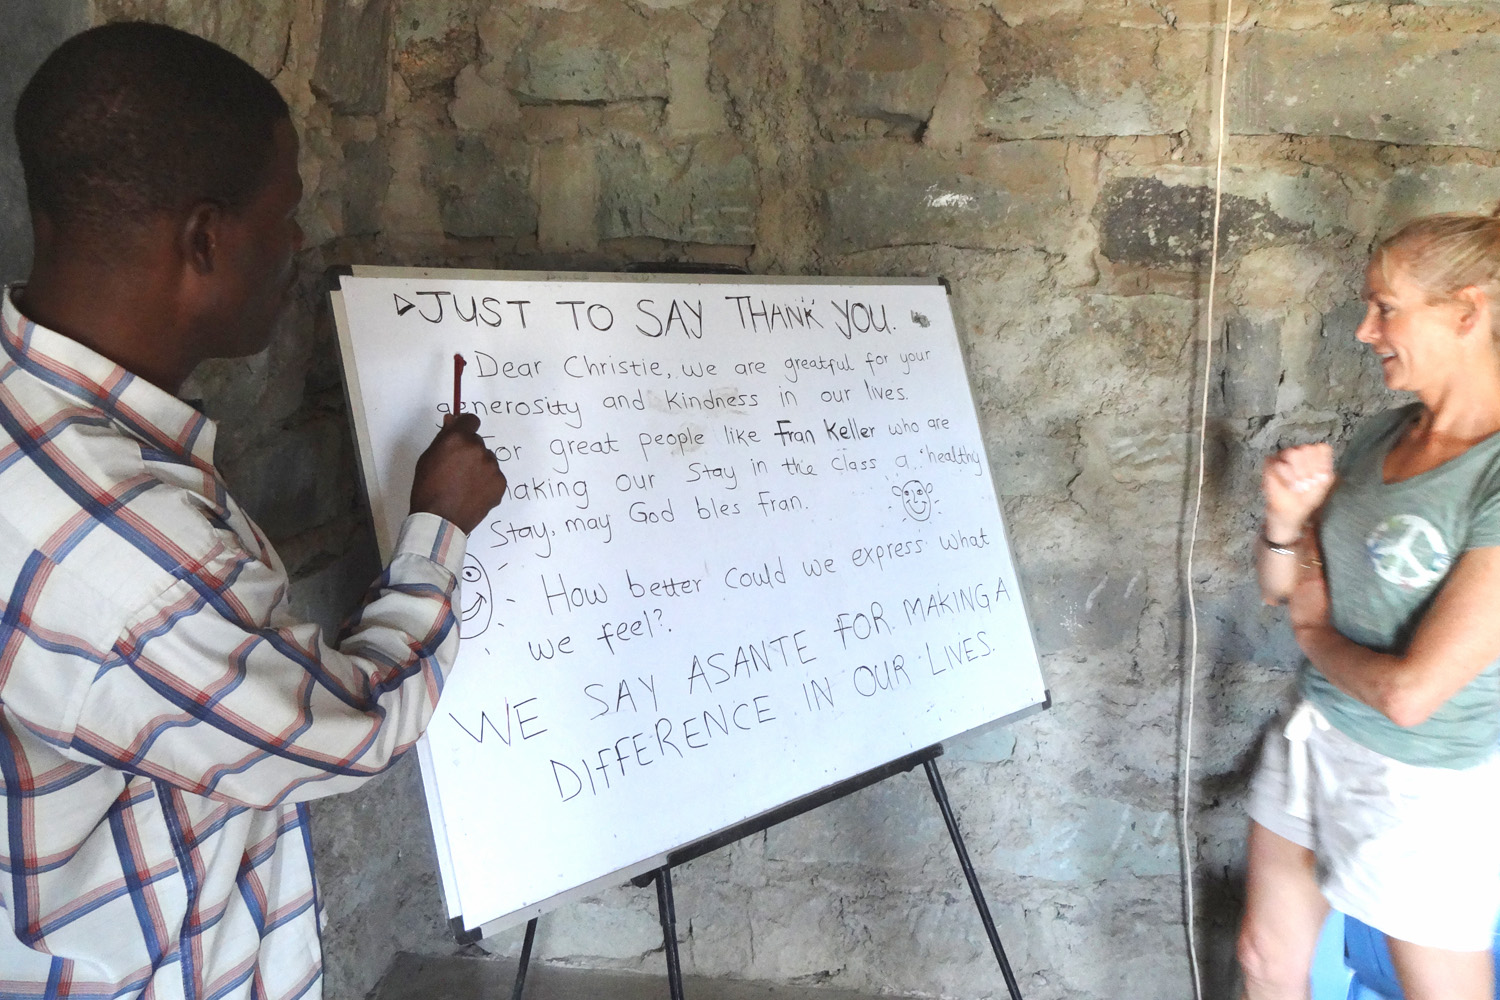 JUST TO SAY THANK YOU.
Dear Christie, we are greatful for your
generosity and kindness in our lives.
For great people like Fran Keller who are
making our Stay in the Class a 'healthy
Stay, may God bles Fran.
How better could we express what
we feel?.
WE SAY ASANTE FOR MAKING A
DIFFERENCE IN OUR LIVES.